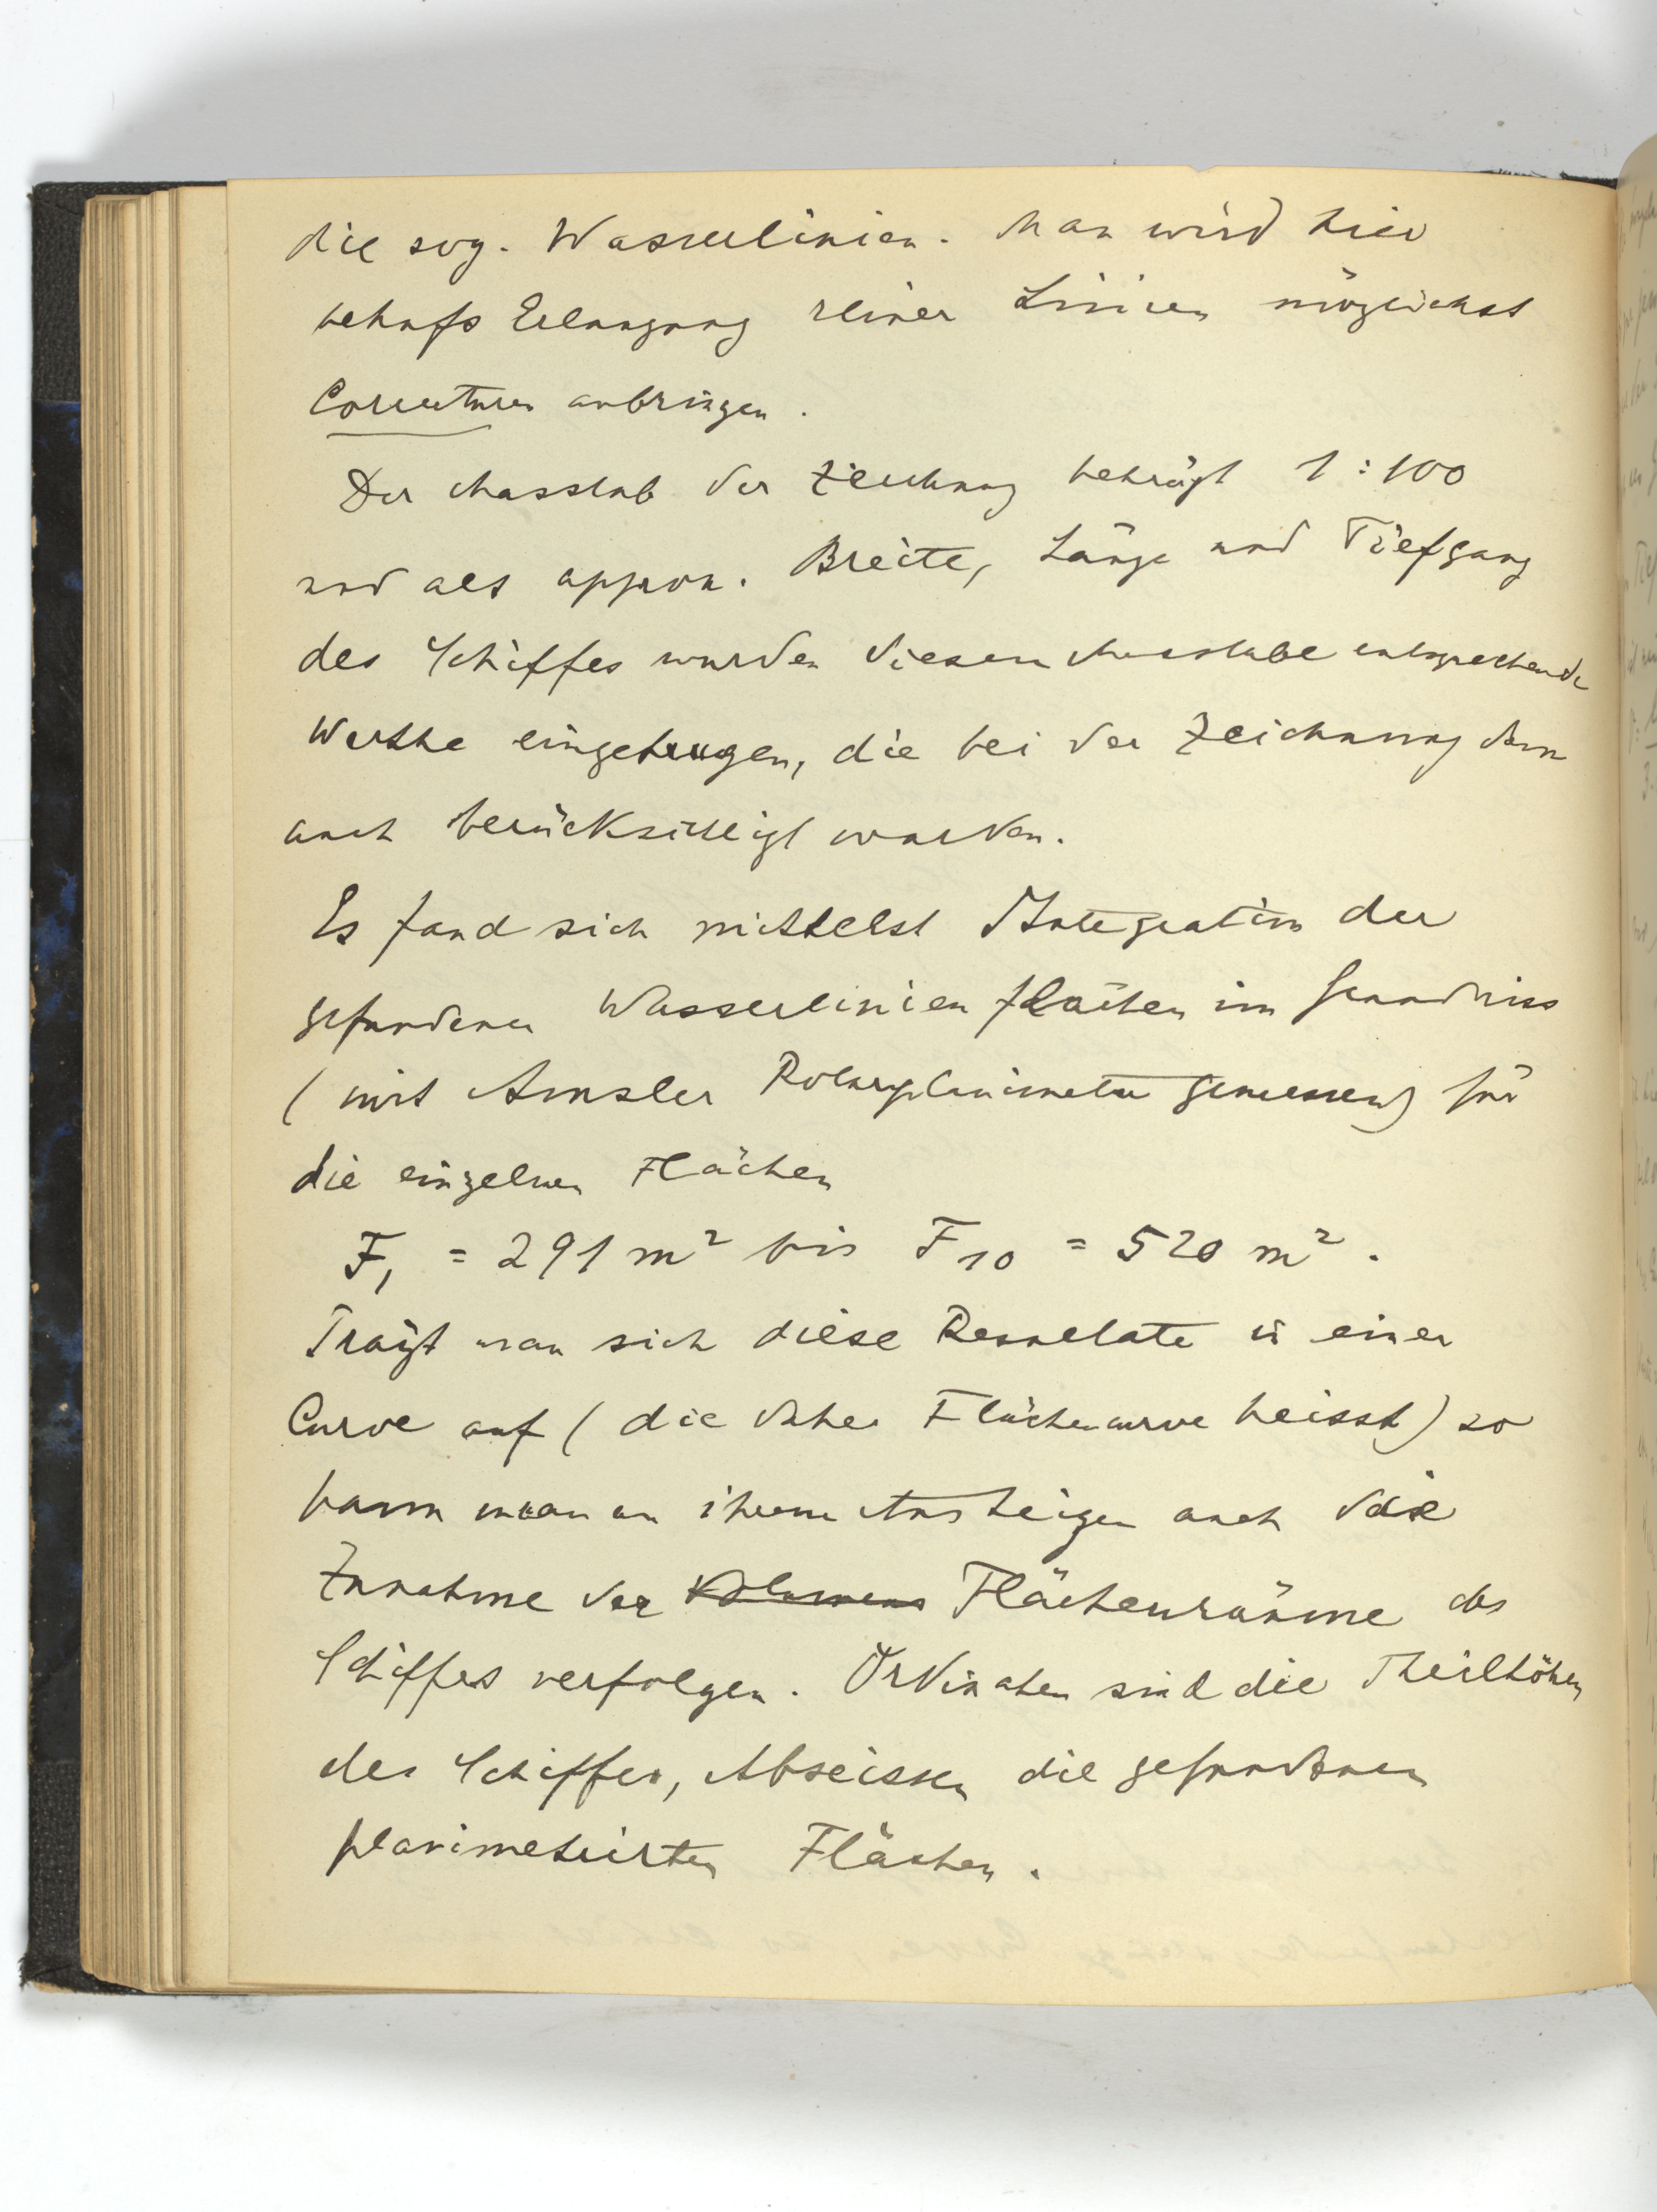 die sog. Wasserlinien. Man wird hier
behufs Erlangung reiner Linien möglichst
Correcturen anbringen.
Der Masstab der Zeichnung beträgt 1:100
und als approx. Breite, Länge und Tiefgang
des Schiffes wurden diesem Masstabe entsprechende
Werthe eingetragen, die bei der Zeichnung dann
auch berücksichtigt wurden.
Es fand sich mittelst Integration der
gefundenen Wasserlinienflächen im Grundriss
(mit Amsler Polarplanimeter gemessen) für
die einzelnen Flächen
F₁ = 291 m² bis F₁₀ = 520 m².
Trägt man sich diese Resultate in einer
Curve auf (die daher Flächencurve heisst) so
kann man an ihrem Ansteigen auch die
Zunahme der Volumens Flächenräume des
Schiffes verfolgen. Ordinaten sind die Theilhöhen
des Schiffes, Abscissen die gefundenen
planimetrirten Flächen.